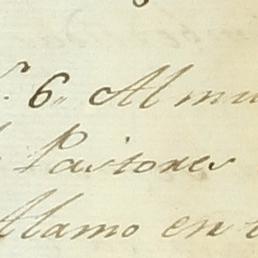 6 Al mu
Pastores
Alamo en